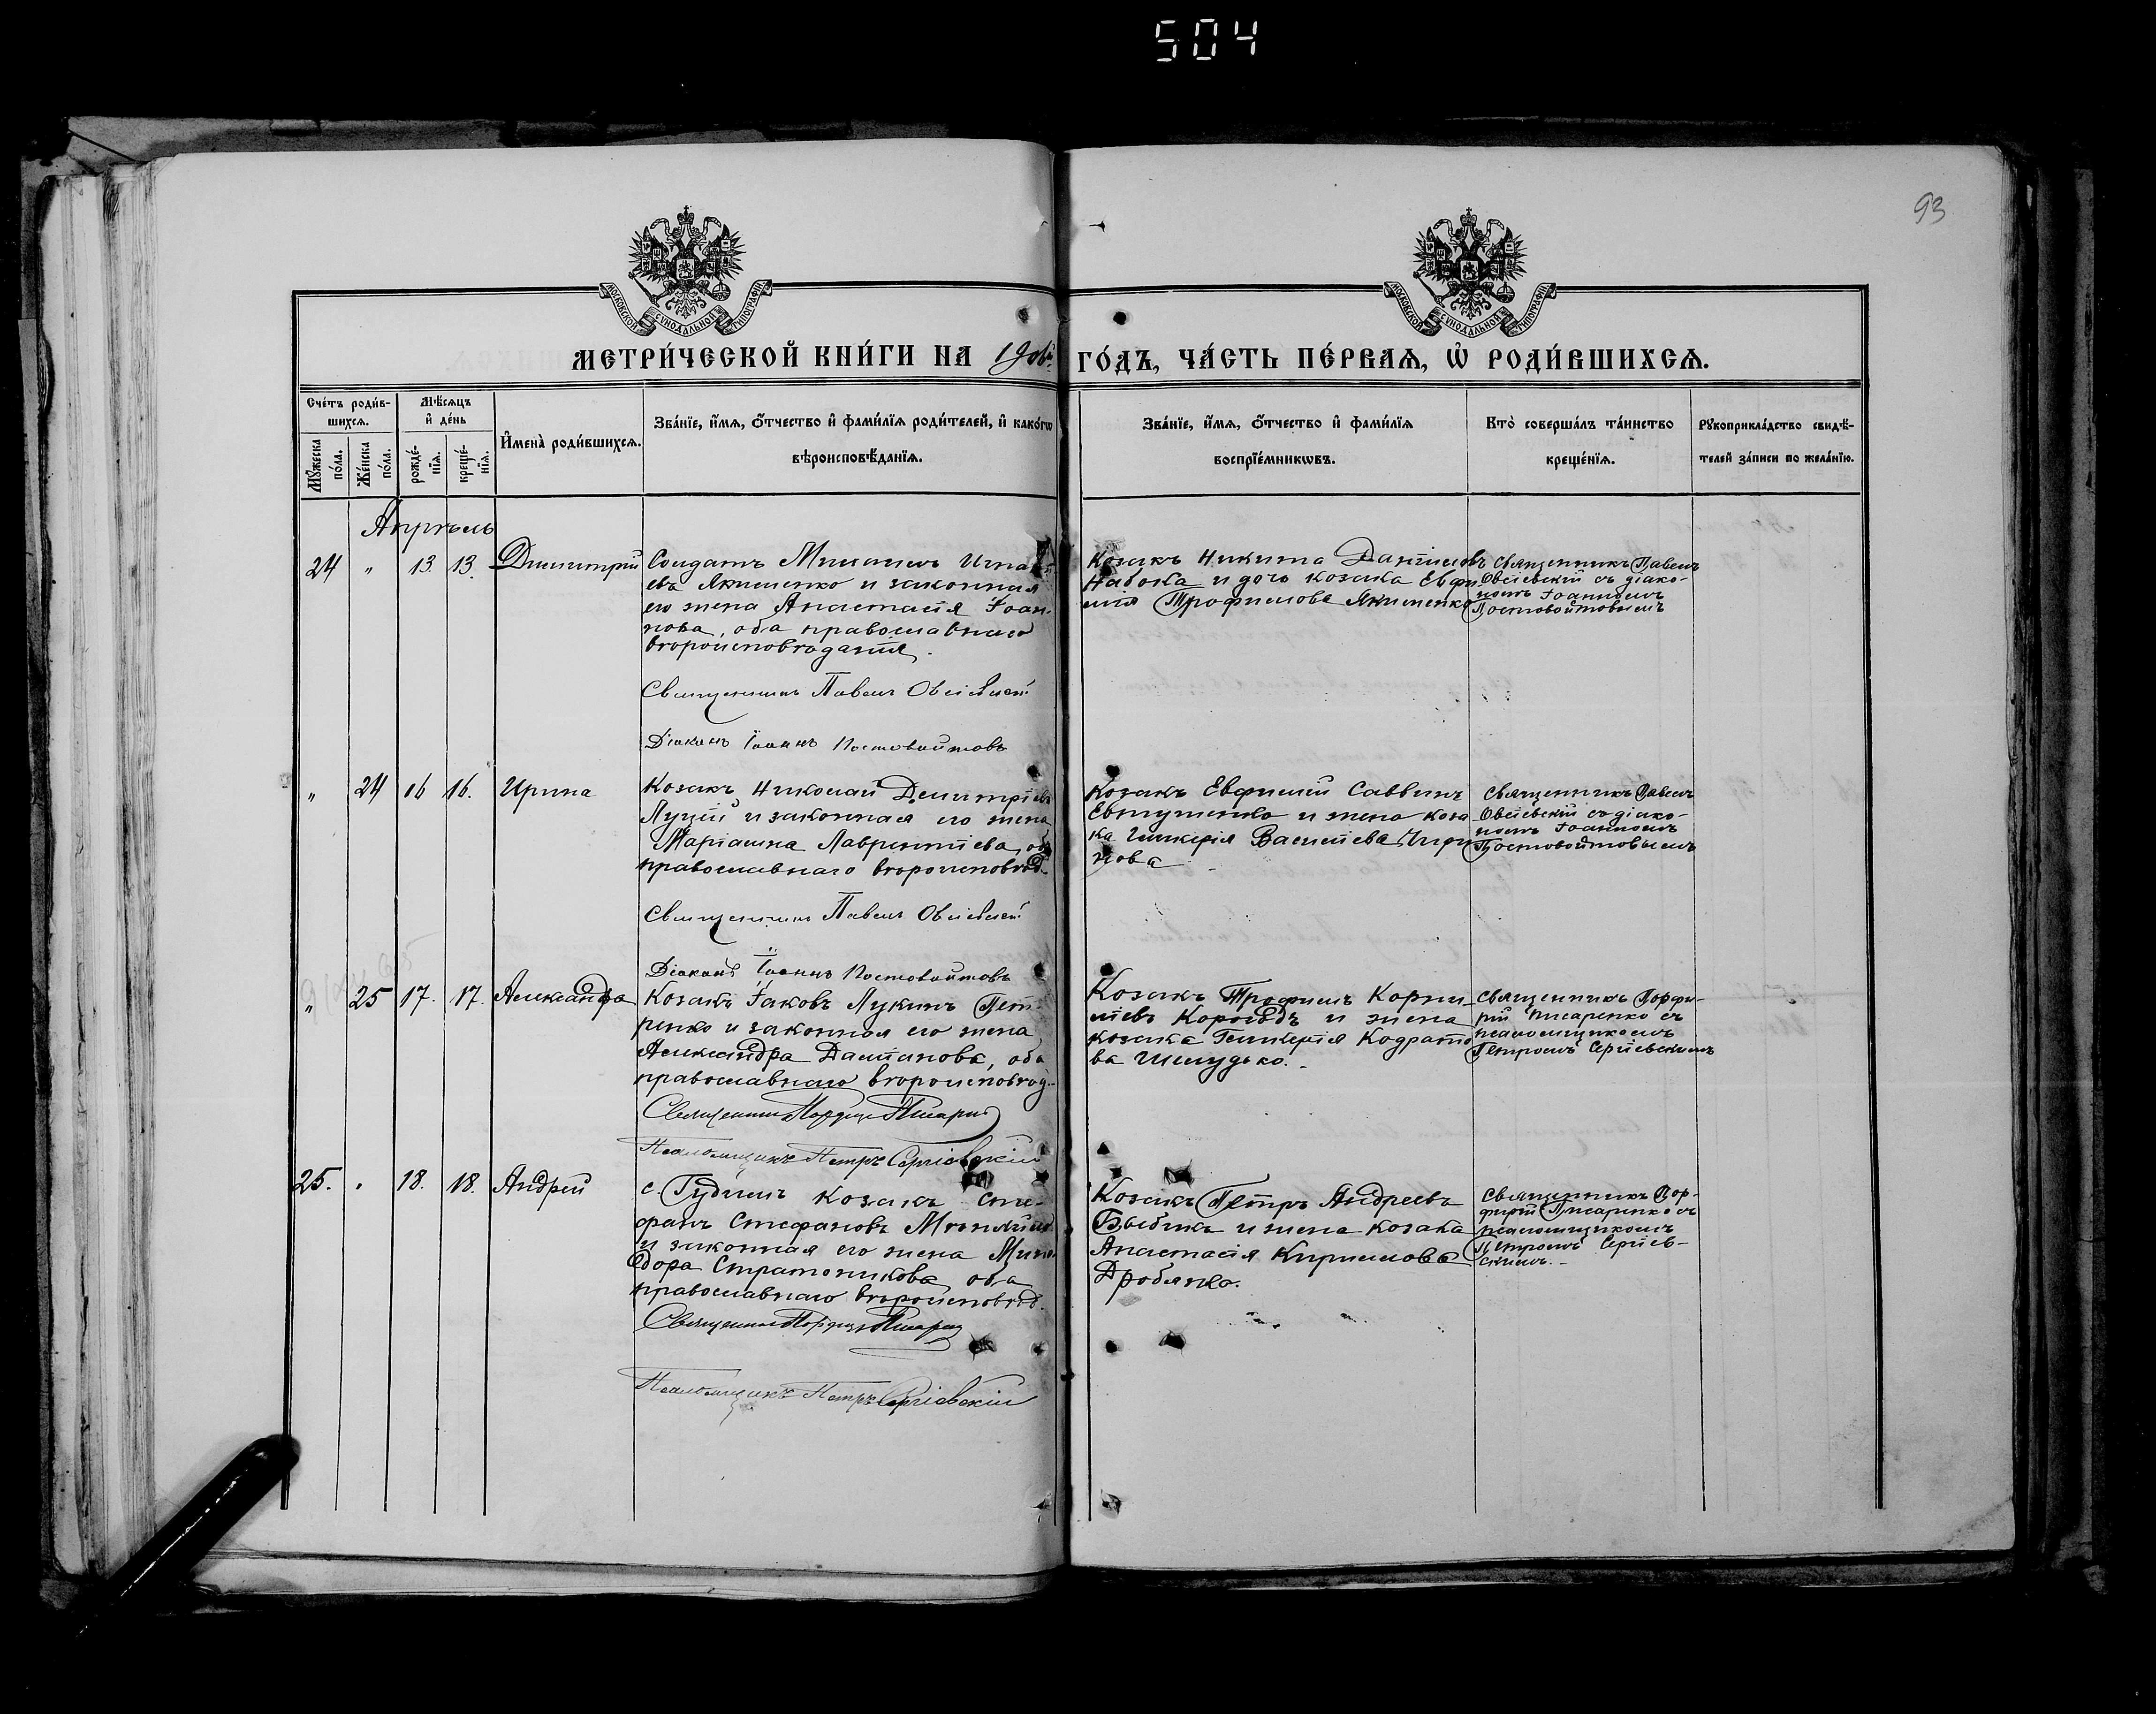 504
93
МОСКОВСКОЙ СѴНОДАЛЬНОЙ ТИПОГРАФІИ
МОСКОВСКОЙ СѴНОДАЛЬНОЙ ТИПОГРАФІИ
МЕТРИ́ЧЕСКОЙ КНИ́ГИ НА 1906й ГО́ДЪ, ЧА́СТЬ ПЕ́РВАѦ, Ѡ҆ РОДИ́ВШИХСѦ.
Сче́тъ роди́в-
шихсѧ.
Мꙋ́жеска по́ла.
Же́нска по́ла.
Мѣ́сѧцъ
и҆ де́нь
рожде́-
нїѧ.
креще́-
нїѧ.
И҆мена̀ роди́вшихсѧ.
Зва́нїе, и҆́мѧ, ѻ҆́тчество и҆ фами́лїѧ роди́телей, и҆ како́гѡ
вѣроисповѣ́данїѧ.
Зва́нїе, и҆́мѧ, ѻ҆́тчество и҆ фами́лїѧ
воспрїе́мникѡвъ.
Кто̀ соверша́лъ та́инство
креще́нїѧ.
Рꙋкоприкла́дство свидѣ́-
телей за́писи по жела́нїю.
Апрѣль
24 " 13. 13. Димитрій
Солдатъ Михаилъ Игнаті-
евъ Якименко и законная
его жена Анастасія Іоан-
нова, оба православнаго
вѣроисповѣданія.
Священникъ Павелъ Овсіевскій
Діаконъ Іоаннъ Постовойтовъ
Козакъ Никита Даніиловъ
Набока и дочь козака Евфи-
мія Трофимова Якименко
Священникъ Павелъ
Овсіевскій съ діако-
номъ Іоанномъ
Постовойтовымъ
" 24 16 16. Ирина
Козакъ Николай Димитріевъ
Луцій и законная его жена
Маріамна Лаврентіева, оба
православнаго вѣроисповѣд.
Священникъ Павелъ Овсіевскій
Діаконъ Іоаннъ Постовойтовъ
Козакъ Евфимій Саввинъ
Евтушенко и жена коза-
ка Гликерія Василіева
нова
Священникъ Павелъ
Овсіевскій съ діако-
номъ Іоанномъ
Постовойтовымъ
" 25 17. 17. Александра
Козакъ Іаковъ Лукинъ Пет-
ренко и законная его жена
Александра Даміанова, оба
православнаго вѣроисповѣд.
Священникъ Порфирій Писаренко
Псаломщикъ Петръ Сергіевскій
Козакъ Трофимъ Корни-
ліевъ Короѣдъ и жена
козака Гликерія Кодрато-
ва Шелудько.
Священникъ Порфи-
рій Писаренко съ
псаломщикомъ
Петромъ Сергіевскимъ
25. " 18. 18. Андрей
с. Гудимъ козакъ Сте-
фанъ Стефановъ
и законная его жена Мино-
дора Стратоникова, оба
православнаго вѣроисповѣд.
Священникъ Порфирій Писаренко
Псаломщикъ Петръ Сергіевскій
Козакъ Петръ Андреевъ
Быбикъ и жена козака
Анастасія Кириллова
Дробязко.
Священникъ Пор-
фирій Писаренко съ
псаломщикомъ
Петромъ Сергіев-
скимъ.